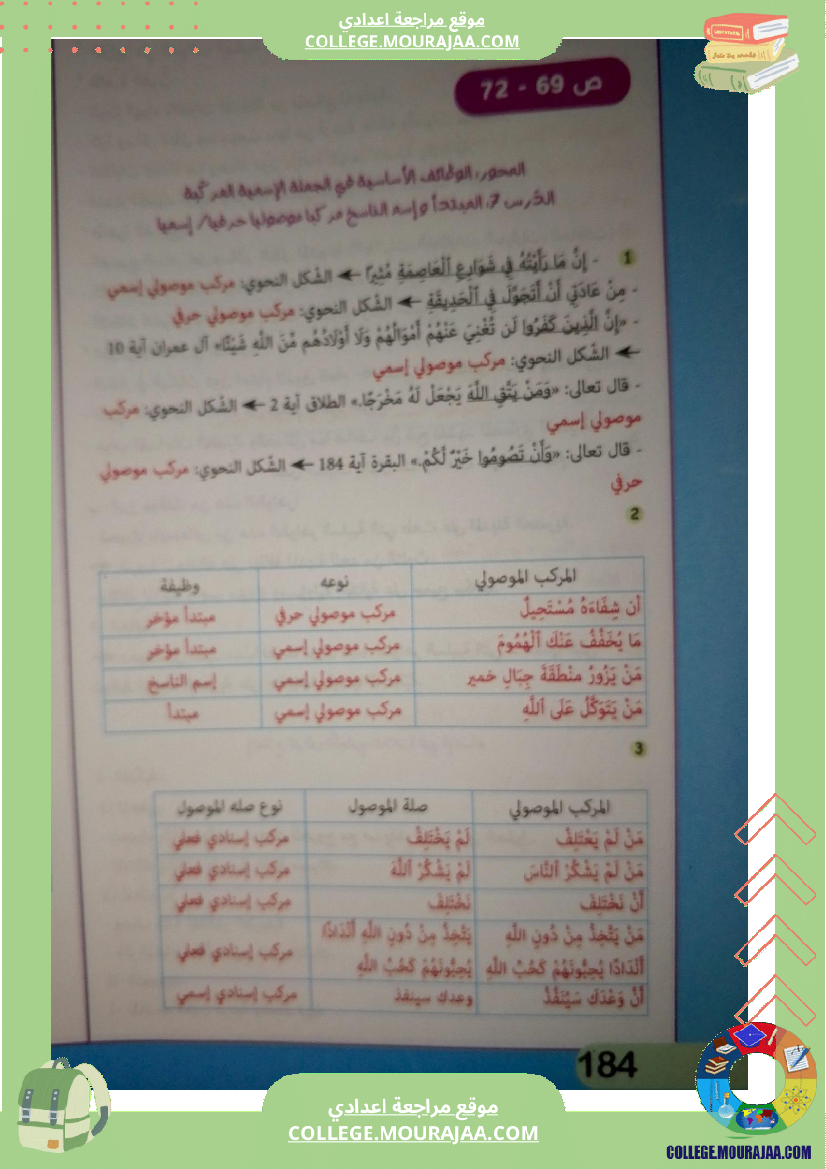 موقع مراجعة اعدادي
COLLEGE.MOURAJAA.COM
ص 69 - 72
المحور: الوظائف الأساسية في الجملة الإسمية المركبة
الدّرس 7: المبتدأ و إسم الناسخ مركبا موصوليا حرفيا/ إسميا
1 - إِنَّ مَا رَأَيْتُهُ فِي شَوَارِعِ ٱلْعَاصِمَةِ مُثِيرًا ← الشّكل النحوي: مركب موصولي إسمي
- مِنْ عَادَتِي أَنْ أَتَجَوَّلَ فِي ٱلْحَدِيقَةِ ← الشّكل النحوي: مركب موصولي حرفي
- «إِنَّ الَّذِينَ كَفَرُوا لَن تُغْنِيَ عَنْهُمْ أَمْوَالُهُمْ وَلَا أَوْلَادُهُم مِّنَ اللَّهِ شَيْئًا» آل عمران آية 10
← الشّكل النحوي: مركب موصولي إسمي
- قال تعالى: «وَمَنْ يَتَّقِ اللَّهَ يَجْعَلْ لَهُ مَخْرَجًا.» الطلاق آية 2 ← الشّكل النحوي: مركب
موصولي إسمي
- قال تعالى: «وَأَنْ تَصُومُوا خَيْرٌ لَكُمْ.» البقرة آية 184 ← الشّكل النحوي: مركب موصولي
حرفي
2
المركب الموصولي نوعه وظيفة
أن شِفَاءَهُ مُسْتَحِيلٌ مركب موصولي حرفي مبتدأ مؤخر
مَا يُخَفِّفُ عَنْكَ ٱلْهُمُومَ مركب موصولي إسمي مبتدأ مؤخر
مَنْ يَزُورُ منْطَقَةَ جِبَالِ خمير مركب موصولي إسمي إسم الناسخ
مَنْ يَتَوَكَّلُ عَلَى ٱللَّهِ مركب موصولي إسمي مبتدأ
3
المركب الموصولي صلة الموصول نوع صله الموصول
مَنْ لَمْ يَخْتَلِفْ لَمْ يَخْتَلِفْ مركب إسنادي فعلي
مَنْ لَمْ يَشْكُرْ ٱلنَّاسَ لَمْ يَشْكُرْ ٱللَّهَ مركب إسنادي فعلي
أَنْ نَخْتَلِفَ نَخْتَلِفَ مركب إسنادي فعلي
مَنْ يَتَّخِذُ مِنْ دُونِ اللَّهِ يَتَّخِذُ مِنْ دُونِ اللَّهِ أَنْدَادًا مركب إسنادي فعلي
أَنْدَادًا يُحِبُّونَهُمْ كَحُبِّ اللَّهِ يُحِبُّونَهُمْ كَحُبِّ اللَّهِ
أَنَّ وَعْدَكَ سَيُنَفَّذُ وعدك سينفذ مركب إسنادي إسمي
184
موقع مراجعة اعدادي
COLLEGE.MOURAJAA.COM
COLLEGE.MOURAJAA.COM